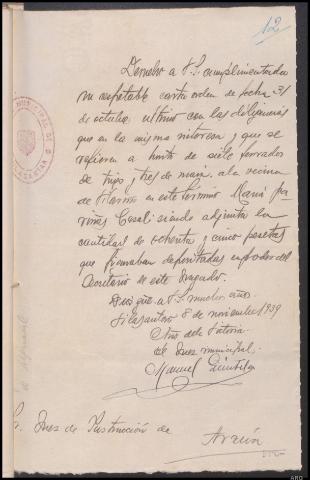 102
Devuelvo a V.S. cumplimentada
su respetable carta orden de fecha 31
de octubre último con las diligencias
que en la misma interesa y que se
refieren a hurto de siete ferrados
de trigo y tres de maiz, a la vecina
de en este término Maria
Casal; siendo adjunta la
cantidad de ochenta y cinco pesetas
que firmaban depositadas en poder del
Secretario de este Juzgado.
Dios gue. a V.S. muchos años.
Vilasantar 8 de noviembre 1939
Año de la Victoria.
El Juez municipal.
Manuel
Sr. Juez de Instrucción de
Arzúa